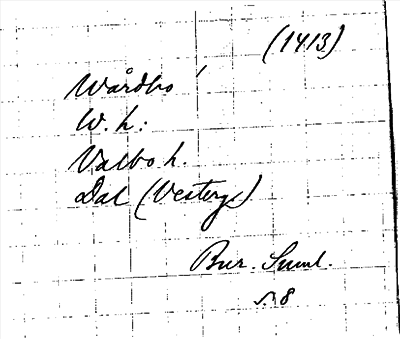 (1413)
Wårdbo
W. h:
Valbo h.
Dal (Vesterg)
Bur. Suml.
s. 8